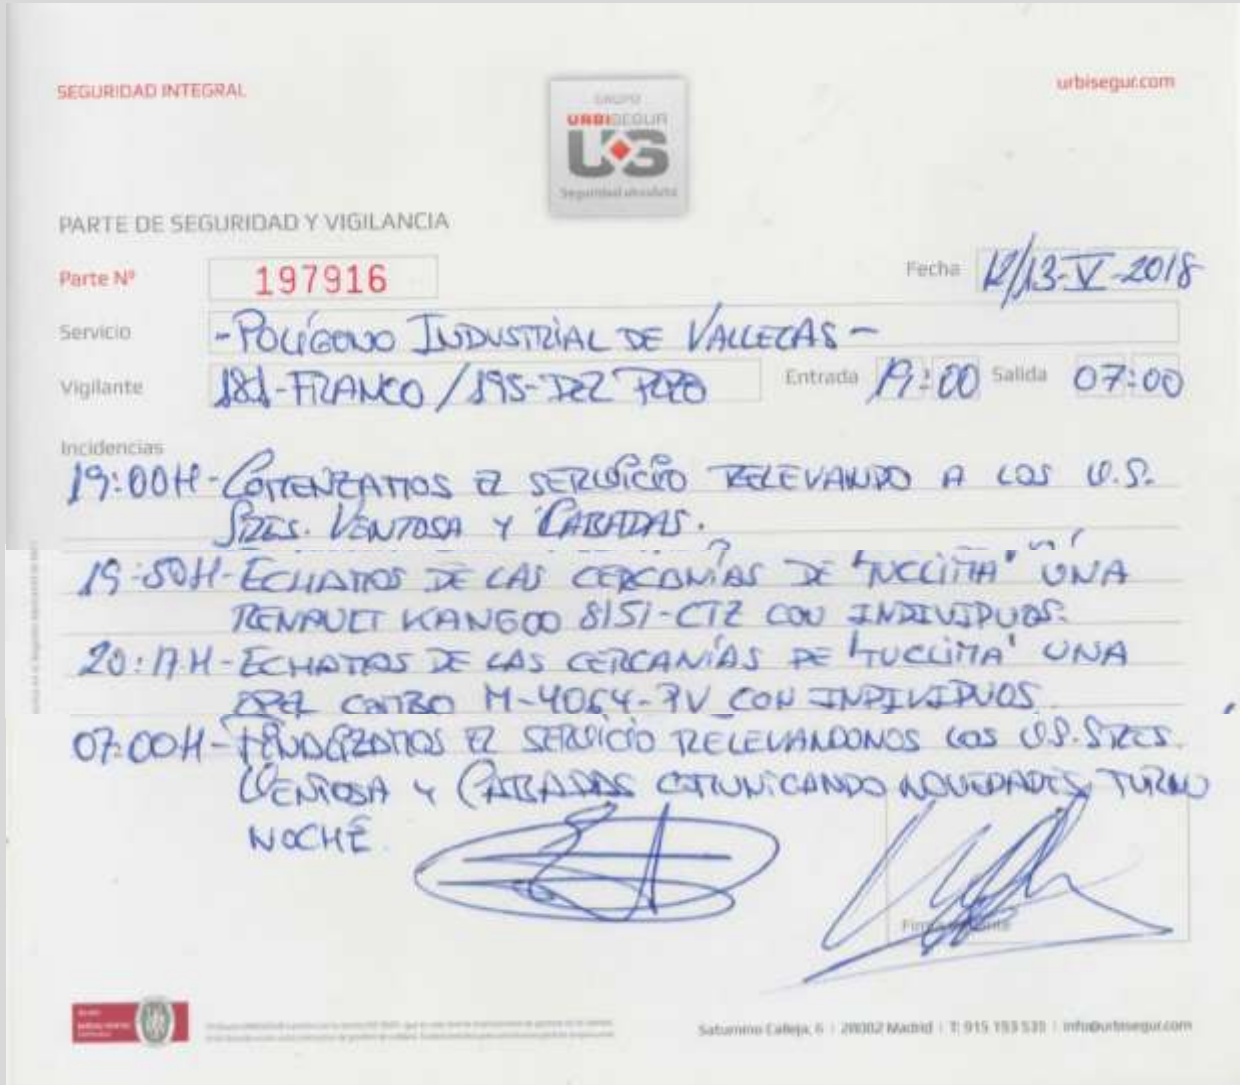 SEGURIDAD INTEGRAL
urbisegur.com
GRUPO
URBISEGUR
US
Seguridad absoluta
PARTE DE SEGURIDAD Y VIGILANCIA
Parte Nº 197916
Fecha 12/13-V-2018
Servicio -POLÍGONO INDUSTRIAL DE VALLECAS-
Vigilante 181-FRANCO / 195-DEL POZO Entrada 19:00 Salida 07:00
Incidencias
19:00H-COMENZAMOS EL SERVICIO RELEVANDO A LOS V.S.
SRES. VENTOSA Y CABADAS.
19:50H-ECHAMOS DE LAS CERCANÍAS DE "TUCLIMA" UNA
RENAULT KANGOO 8151-CTZ CON INDIVIDUOS.
20:17H-ECHAMOS DE LAS CERCANÍAS DE "TUCLIMA" UNA
OPEL COMBO M-4064-PV CON INDIVIDUOS.
07:00H-FINALIZAMOS EL SERVICIO RELEVANDONOS LOS V.S. SRES.
VENTOSA Y CABADAS COMUNICANDO NOVEDADES TURNO
NOCHE.
Saturnino Calleja, 6 | 28002 Madrid | T: 915 193 535 | info@urbisegur.com